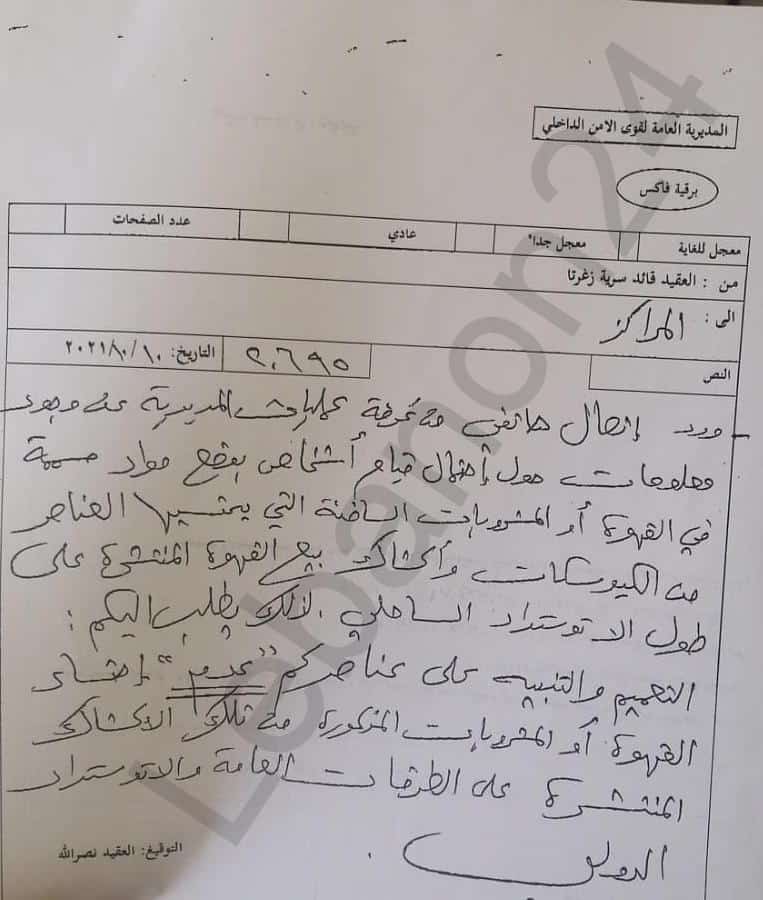 المديرية العامة لقوى الامن الداخلي
برقية فاكس
معجل للغاية معجل جداً عادي عدد الصفحات
من : العقيد قائد سرية زغرتا
الى : المراكز
النص ٢٠٦٩٥ التاريخ: ٢٠٢١/١٠/١٠
- ورد إتصال هاتفي من غرفة عمليات المديرية عن وجود
معلومات حول إحتمال قيام أشخاص بوضع مواد مسممة
في القهوة أو المشروبات الساخنة التي يحتسيها العناصر
من الكيوسكات وأكشاك بيع القهوة المنتشرة على
طول الاتوستراد الساحلي. لذلك يطلب اليكم :
التعميم والتنبيه على عناصركم "عدم" إحتساء
القهوة أو المشروبات المذكورة من تلك الاكشاك
المنتشرة على الطرقات العامة والاتوستراد
الدولي.
التوقيع: العقيد نصرالله
Lebanon24